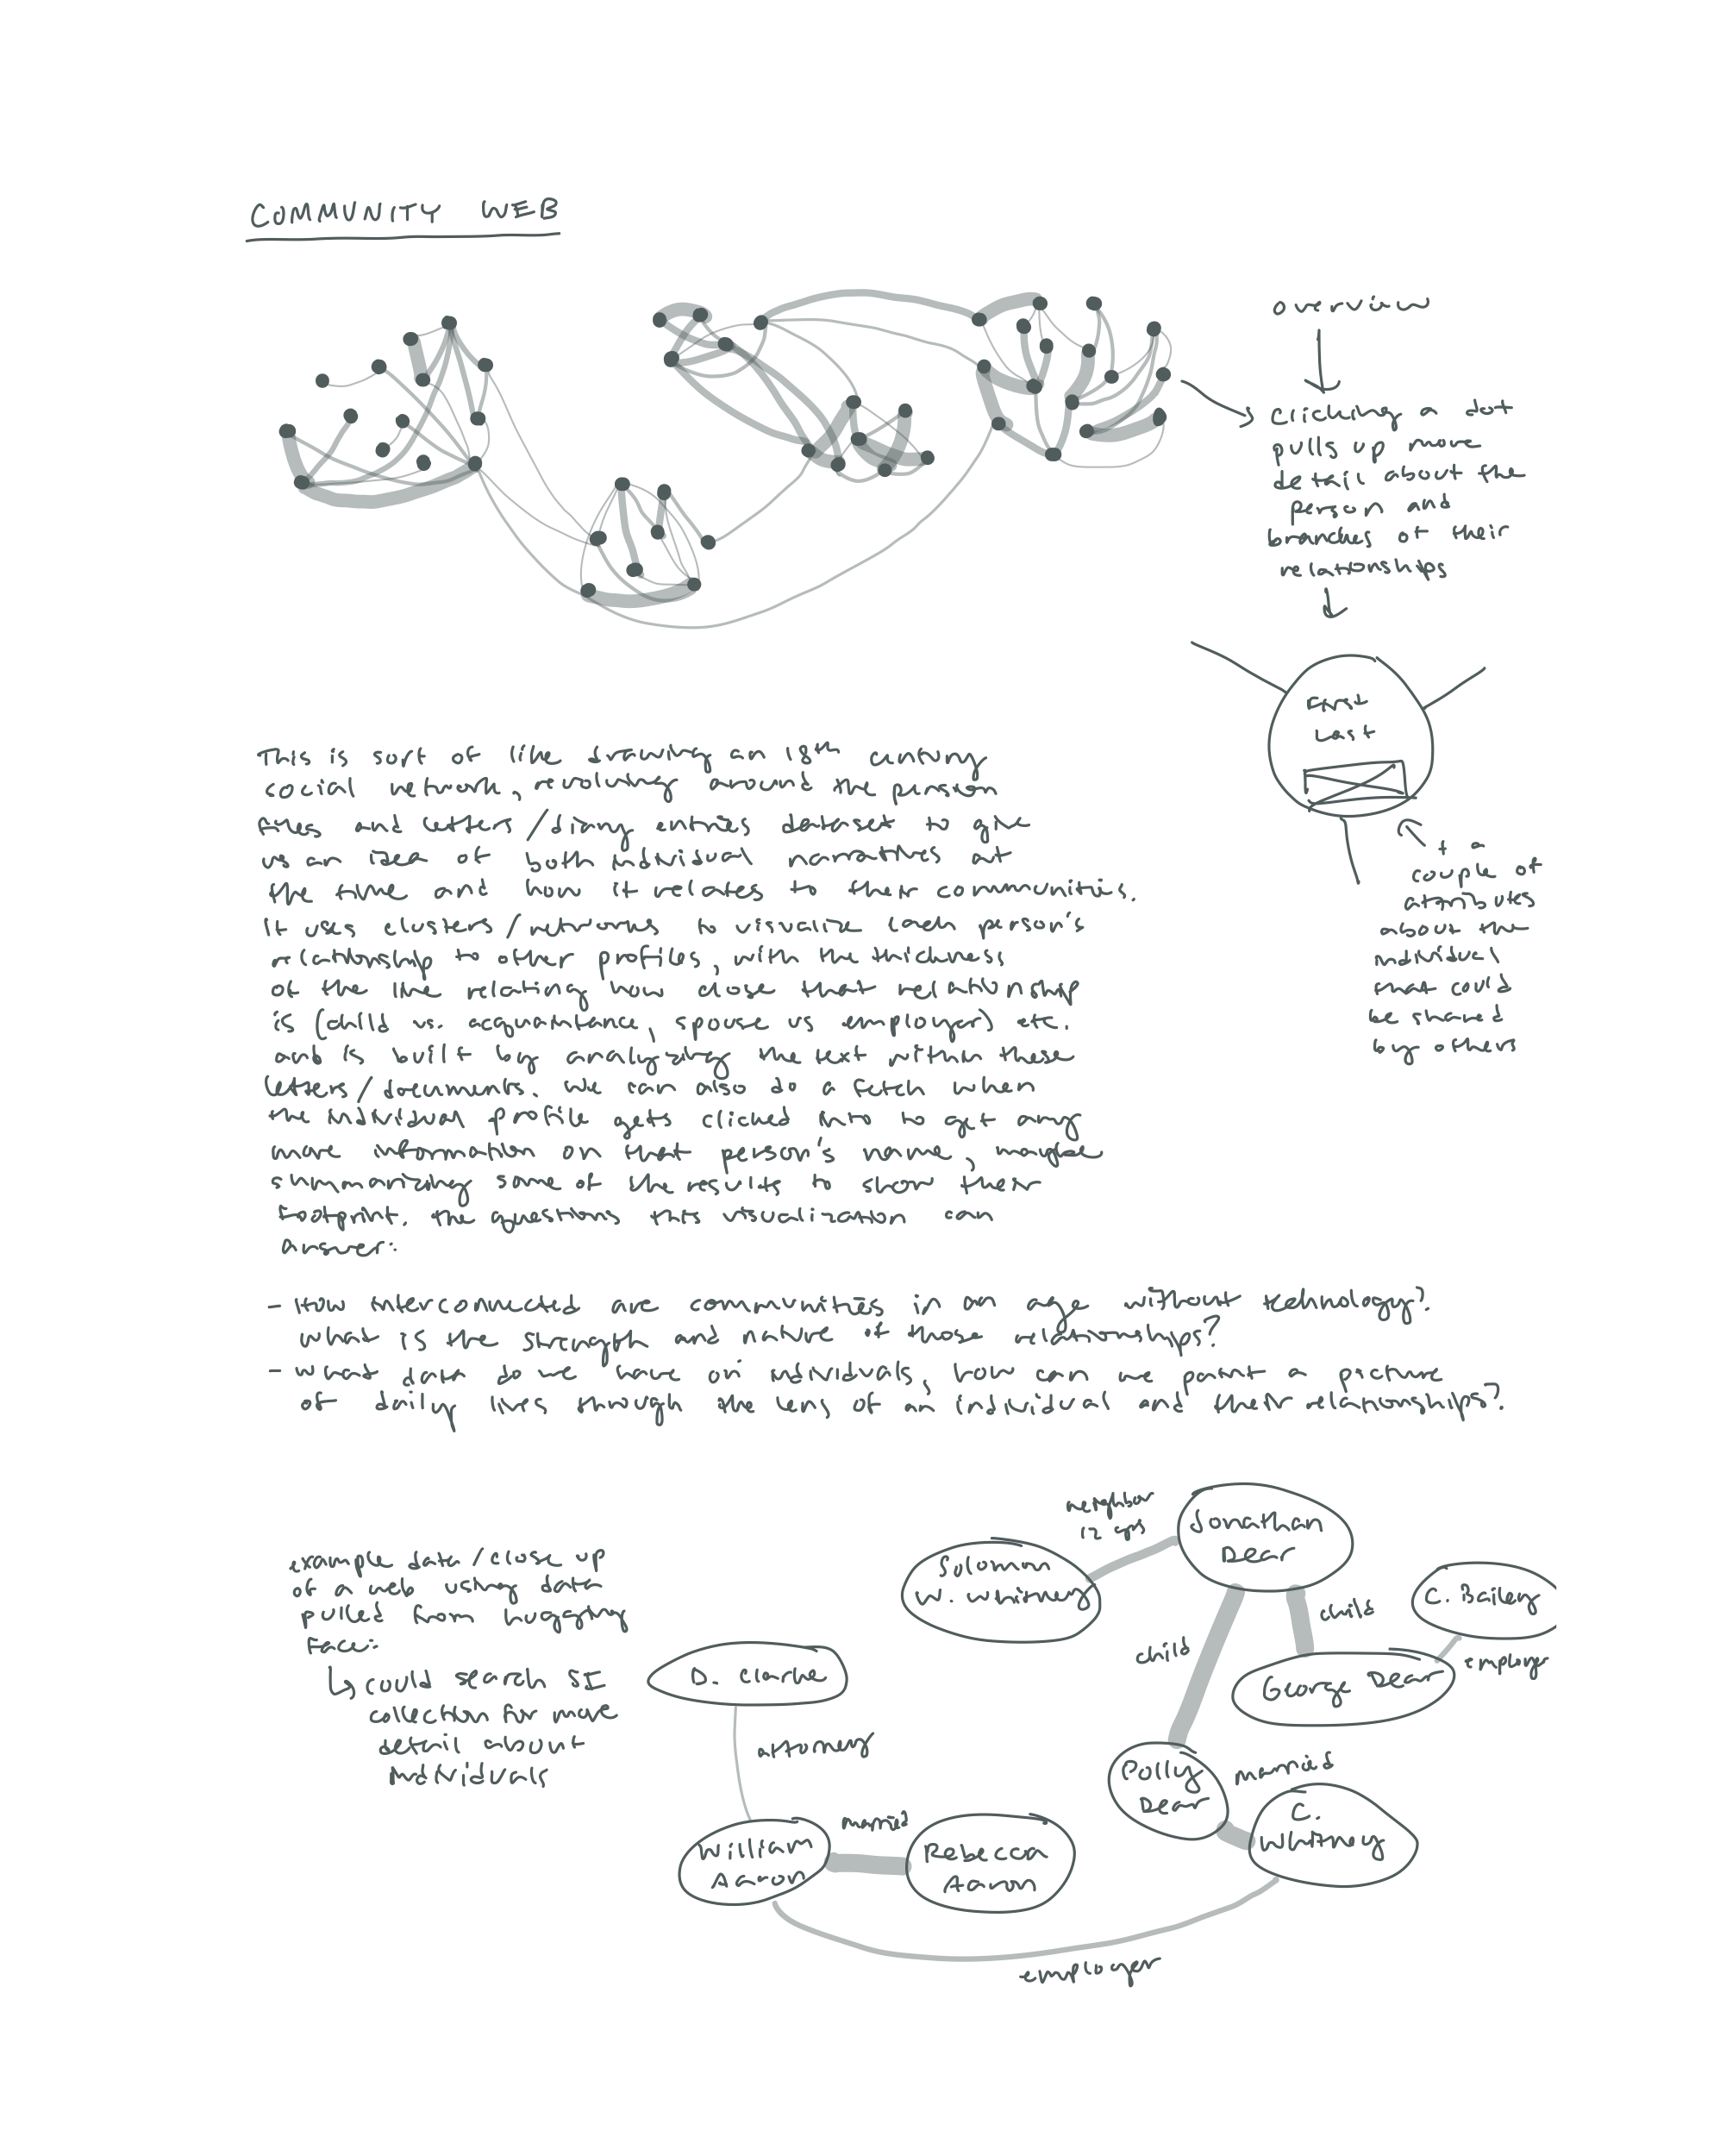 COMMUNITY WEB
overview
clicking a dot
pulls up more
detail about the
person and
branches of their
relationships
First
Last
+ a
couple of
attributes
about the
individual
that could
be shared
by others
This is sort of like drawing an 18th century
social network, revolving around the pension
files and letters/diary entries dataset to give
us an idea of both individual narratives at
the time and how it relates to their communities.
It uses clusters/networks to visualize each person's
relationship to other profiles, with the thickness
of the line relating how close that relationship
is (child vs. acquaintance, spouse vs employer) etc.
and is built by analyzing the text within these
letters/documents. We can also do a fetch when
the individual profile gets clicked into to get any
more information on that person's name, maybe
summarizing some of the results to show their
footprint. The questions this visualization can
answer:
- How interconnected are communities in an age without technology?
what is the strength and nature of those relationships?
- what data do we have on individuals, how can we paint a picture
of daily lives through the lens of an individual and their relationships?
example data/close up
of a web using data
pulled from hugging
face:
could search SI
collection for more
detail about
individuals
neighbor
12 yrs
Jonathan
Dear
Solomon
W. Whitney
child
child
C. Bailey
employer
George Dear
D. Clarke
attorney
Polly
Dear
married
C.
Whitney
William
Aaron
married
Rebecca
Aaron
employer